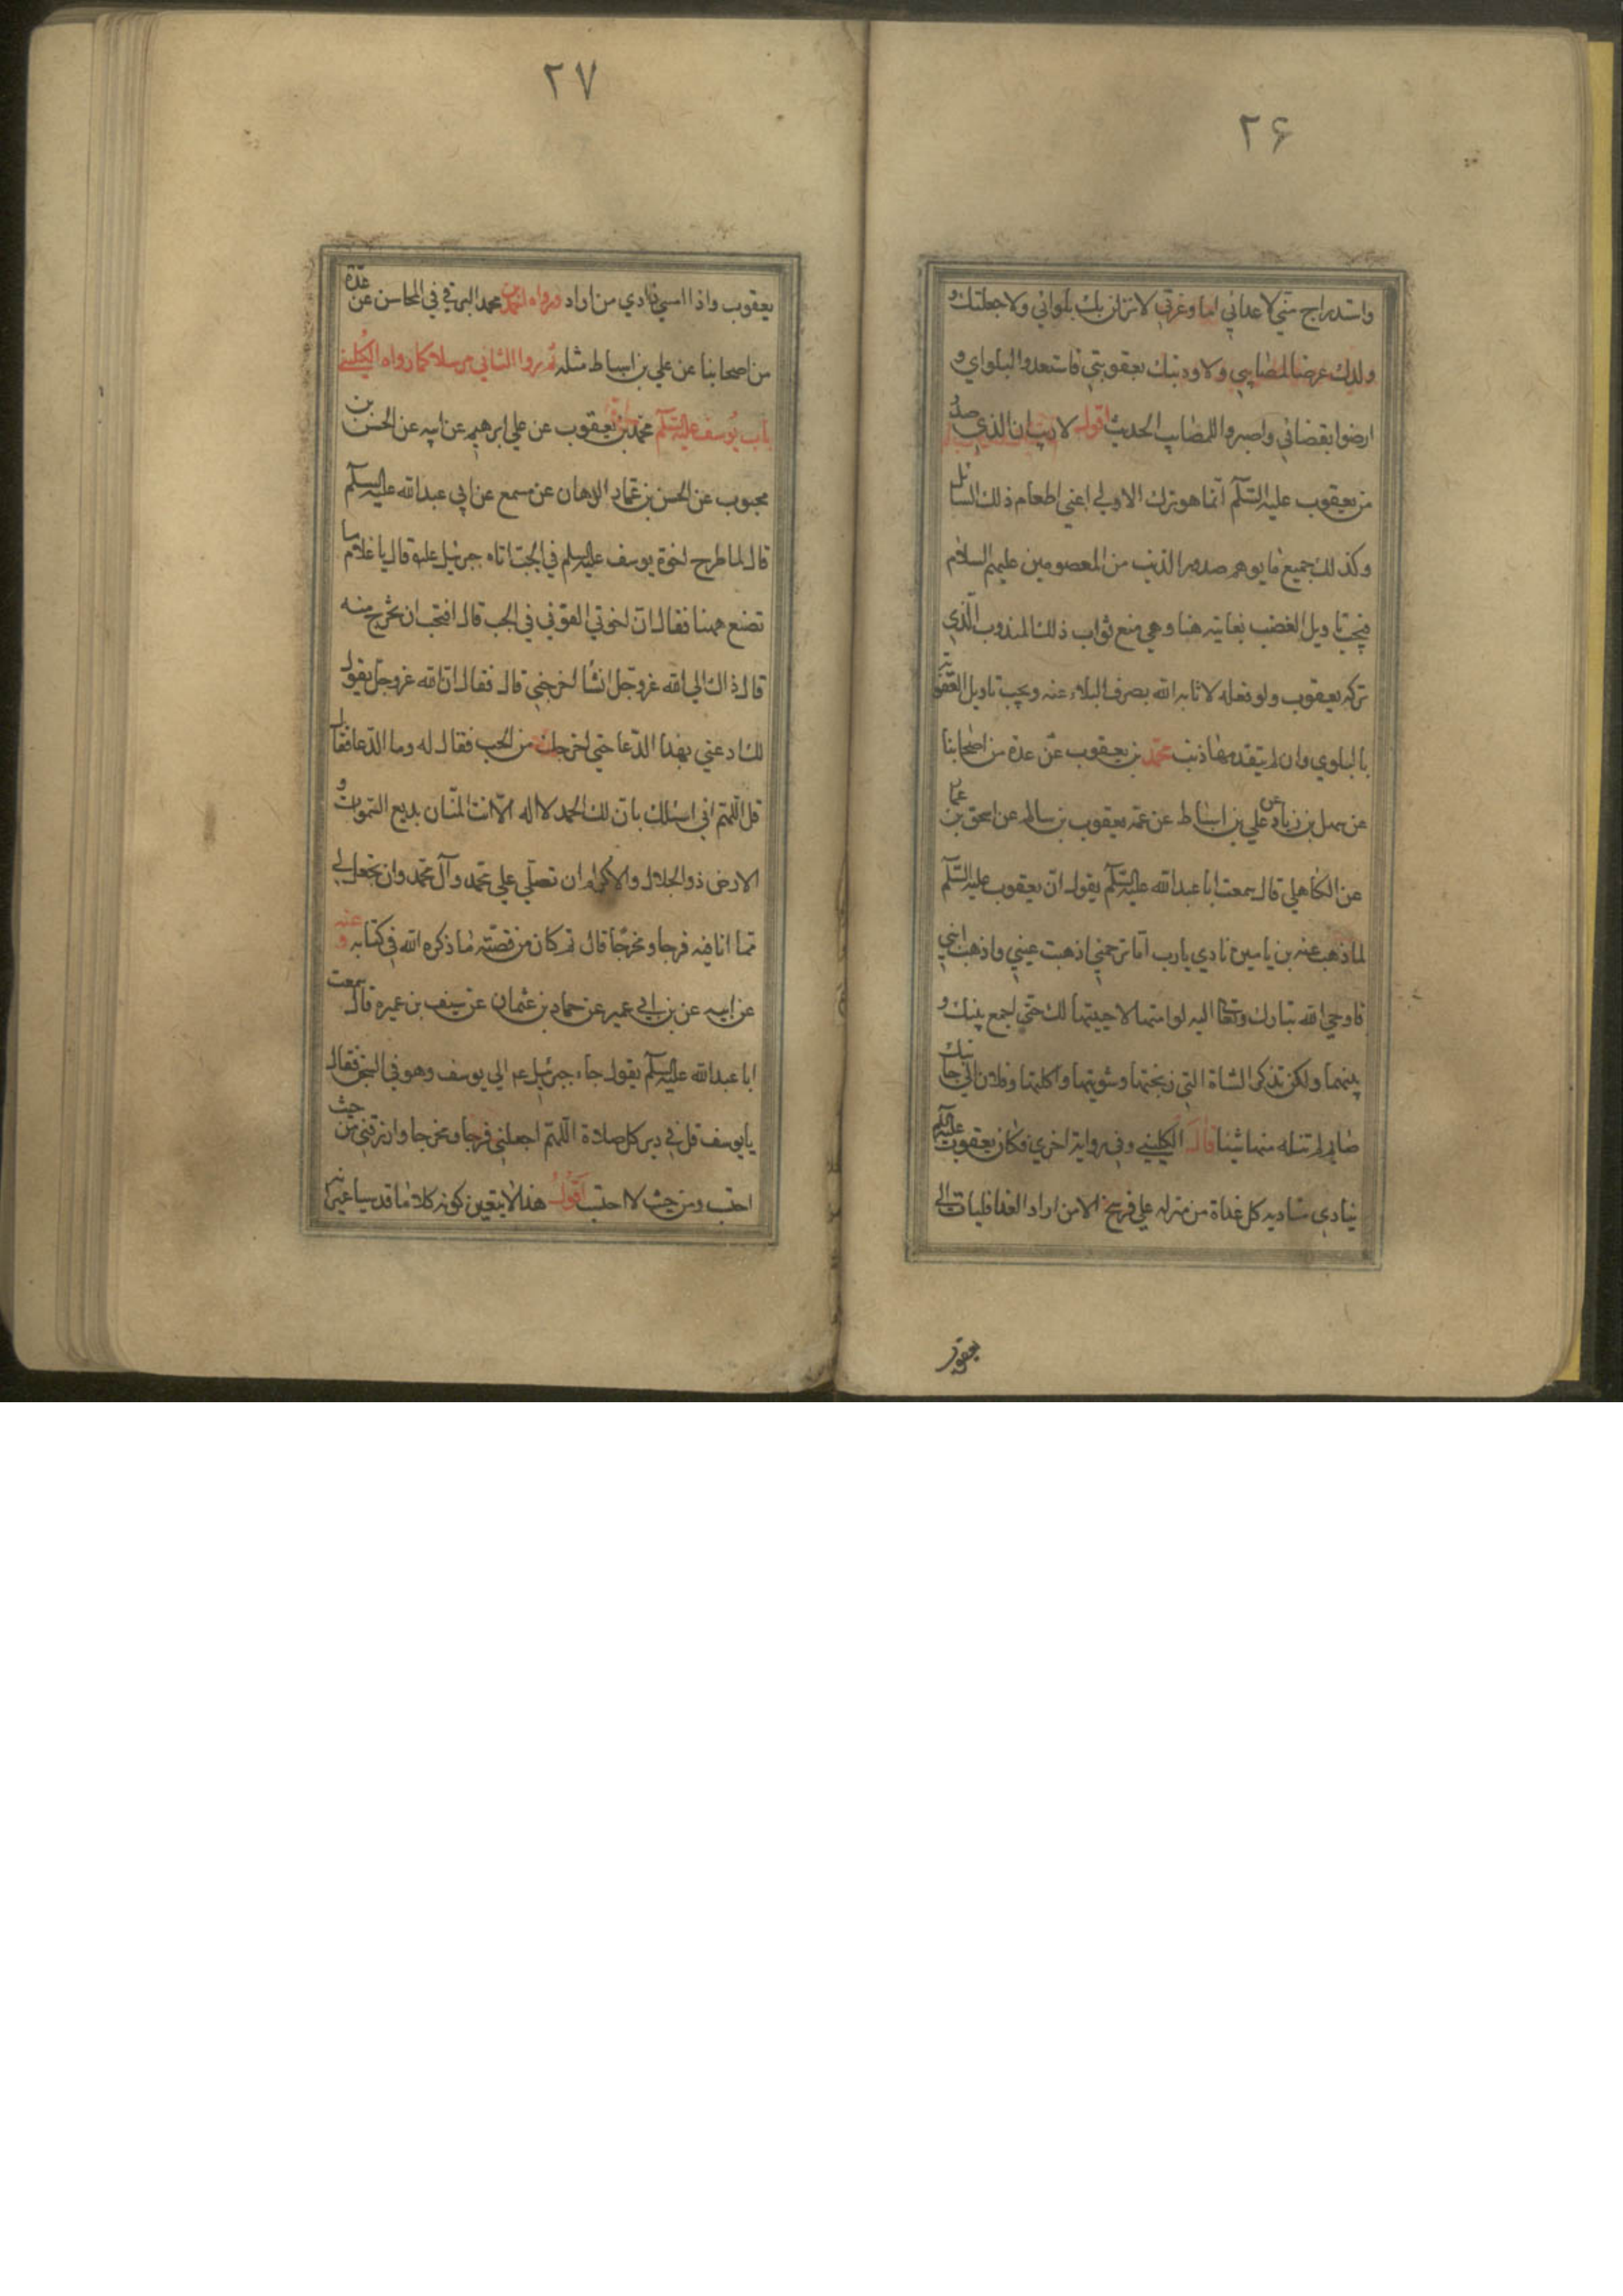 ۲۶
واستدراج مني لاعدائي اما وعزتي لانزلن بك بلوائي ولاجعلنك و
ولدك غرضا لمصايبي ولاوذينك بعقوبتي فاستعدوا لبلواي و
ارضوا بقضائي واصبروا للمصايب الحديث اقول لا ريب ان الذي صدر
من يعقوب عليه السلام انما هو ترك الاولي اعني اطعام ذلك السائل
وكذلك جميع ما يوهم صدور الذنب من المعصومين عليهم السلام
فيجب تاويل الغضب بغايته هنا وهي منع ثواب ذلك المندوب الذي
تركه يعقوب ولو فعله لاثابه الله بصرف البلاء عنه ويجب تاويل العقوبة
بالبلوي وان لم يتقدمها ذنب محمد بن يعقوب عن عدة من اصحابنا
عن سهل بن زياد عن علي بن اسباط عن عمه يعقوب بن سالم عن اسحق بن عمار
عن الكاهلي قال سمعت ابا عبدالله عليه السلام يقول ان يعقوب عليه السلام
لما ذهب عنه بن يامين نادي يا رب اما ترحمني اذهبت عيني واذهبت ابني
فاوحي الله تبارك وتعالي اليه لو امتهما لاحييتهما لك حتي اجمع بينك و
بينهما ولكن تذكر الشاة التي ذبحتها وشويتها واكلتها وفلان الي جانبك
صايم لم تنله منها شيئا قال الكليني وفي رواية اخري فكان يعقوب عليه السلم
ينادي مناديه كل غداة من منزله علي فرسخ الا من اراد الغدا فليات الي
يعقوب
۲۷
يعقوب واذا امسي نادي من اراد ورواه احمد بن محمد البرقي في المحاسن عن عدة
من اصحابنا عن علي بن اسباط مثله ثم روا الثاني مرسلا كما رواه الكليني
باب يوسف عليه السلام محمد بن يعقوب عن علي ابرهيم عن ابيه عن الحسن بن
محبوب عن الحسن بن عمار الدهان عن مسمع عن ابي عبدالله عليه السلام
قال لما طرح اخوة يوسف عليه السلم في الجب اتاه جبرئيل عليه قال يا غلام ما
تصنع ههنا فقال ان اخوتي القوني في الجب قال افتحب ان تخرج منه
قال ذاك الي الله عزوجل انشا اخرجني قال فقال ان الله عزوجل يقول
لك ادعني بهذا الدعا حتي اخرجك من الجب فقال له وما الدعا فقال
قل اللهم اني اسئلك بان لك الحمد لا اله الا انت المنان بديع السموات و
الارض ذو الجلال والاكرام ان تصلي علي محمد وآل محمد وان تجعل لي
مما انا فيه فرجا ومخرجا قال ثم كان من قصته ما ذكره الله في كتابه وعنه
عن ابيه عن بن ابي عمير عن حماد بن عثمان عن سيف بن عميره قال سمعت
ابا عبدالله عليه السلام يقول جاء جبرئيل عم الي يوسف وهو في السجن فقال
يا يوسف قل في دبر كل صلاة اللهم اجعلني فرجا ومخرجا وارزقني من حيث
احتسب ومن حيث لا احتسب اقول هذا لا يتعين كونه كلاما قدسيا غير انه